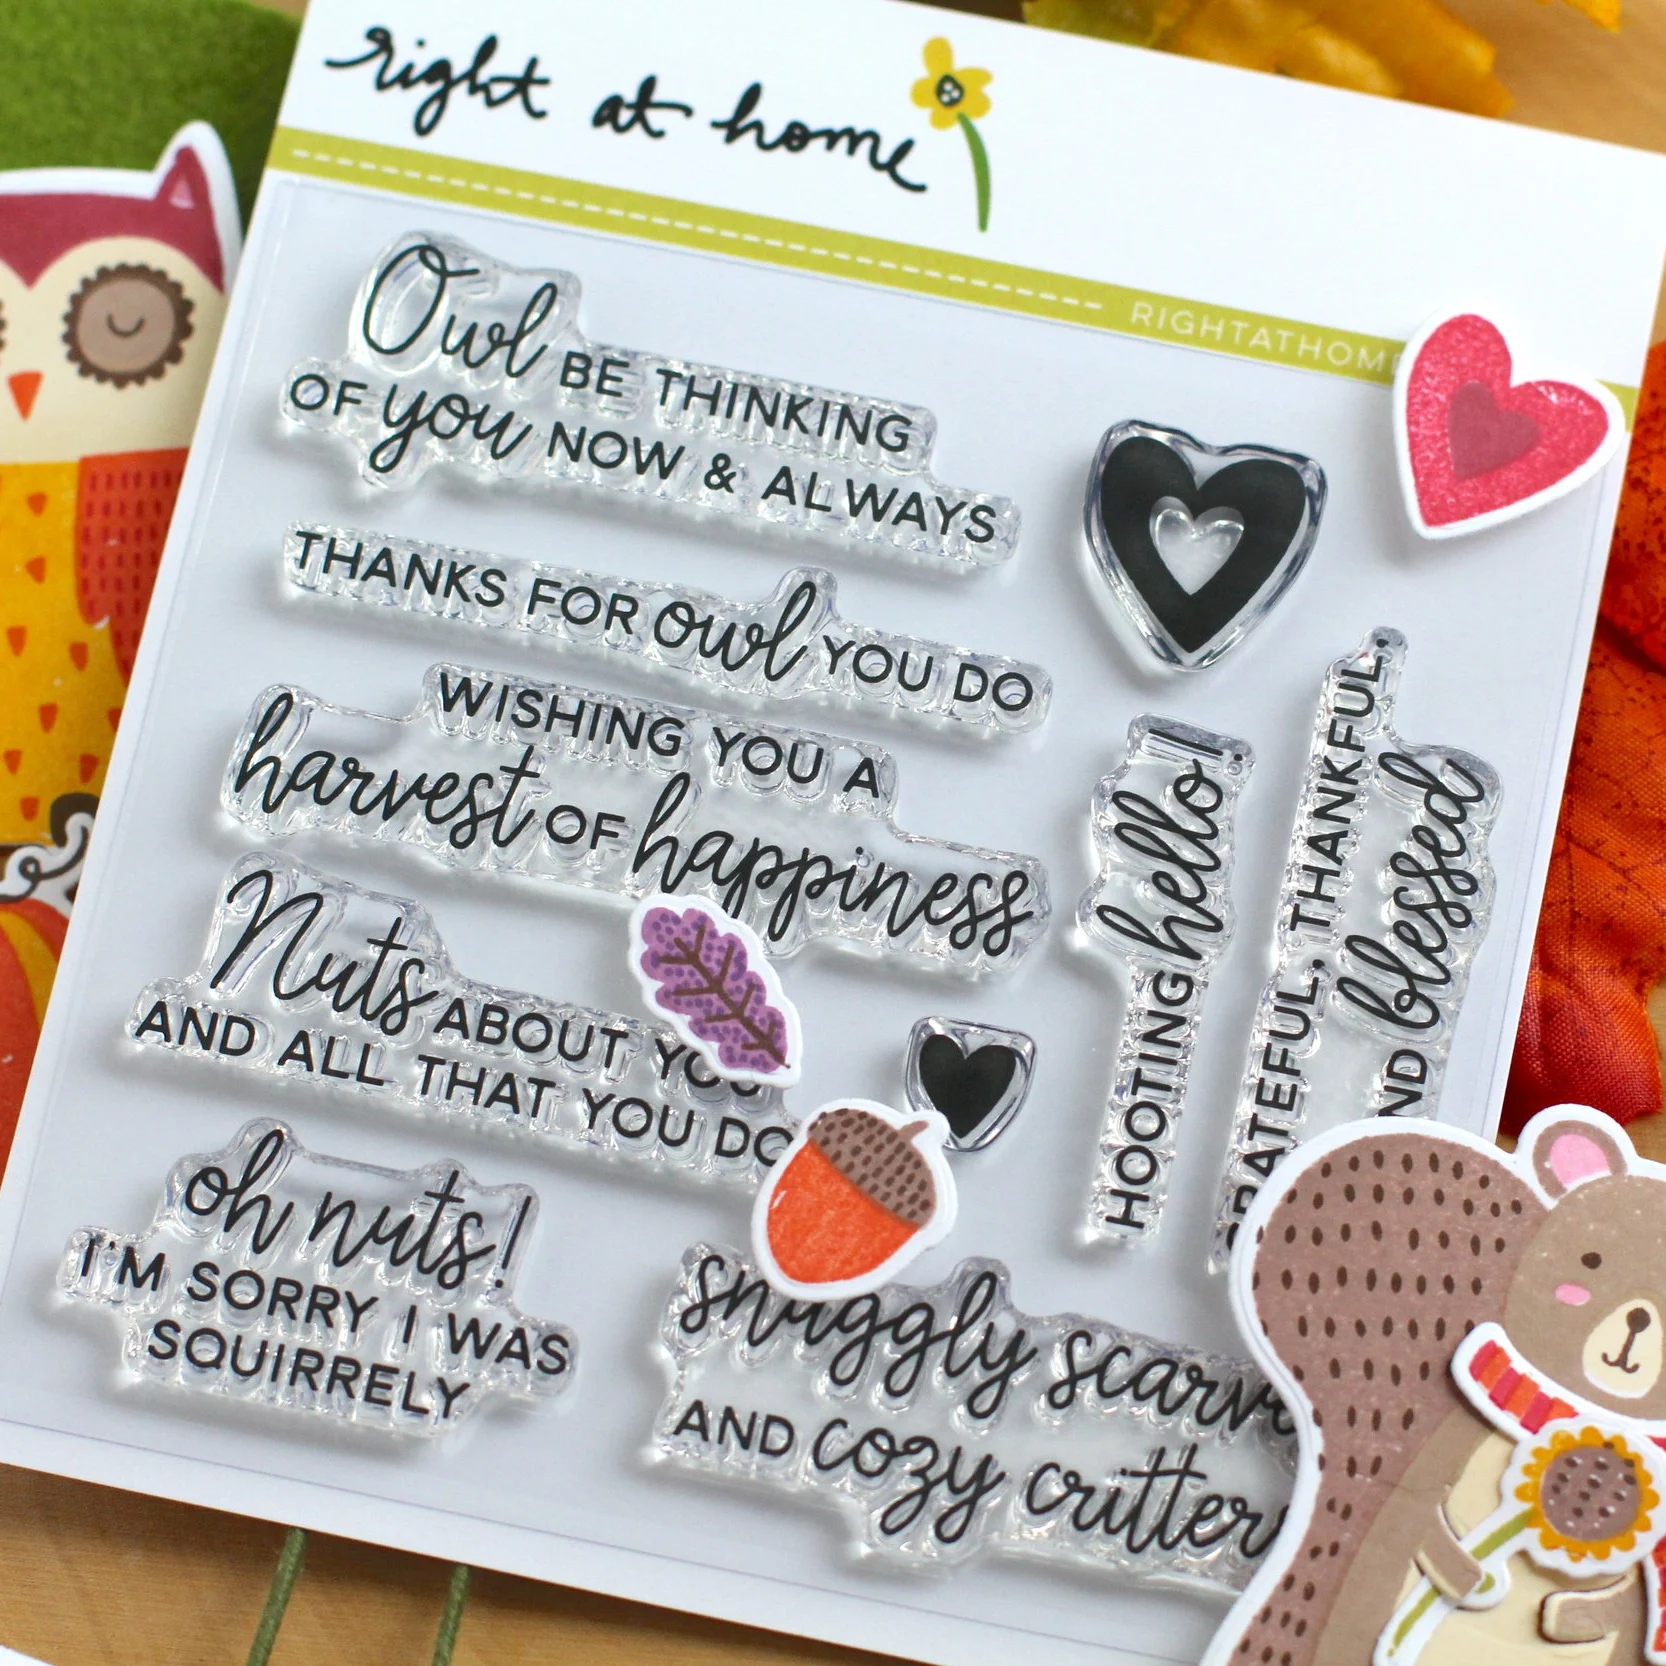 right at home
RIGHTATHOM
Owl BE THINKING
OF you NOW & ALWAYS
THANKS FOR owl YOU DO
WISHING YOU A
harvest OF happiness
Nuts ABOUT YOU
AND ALL THAT YOU DO
oh nuts!
I'M SORRY I WAS
SQUIRRELY
snuggly scarv
AND cozy critters
HOOTING hello!
GRATEFUL, THANKFUL,
AND blessed